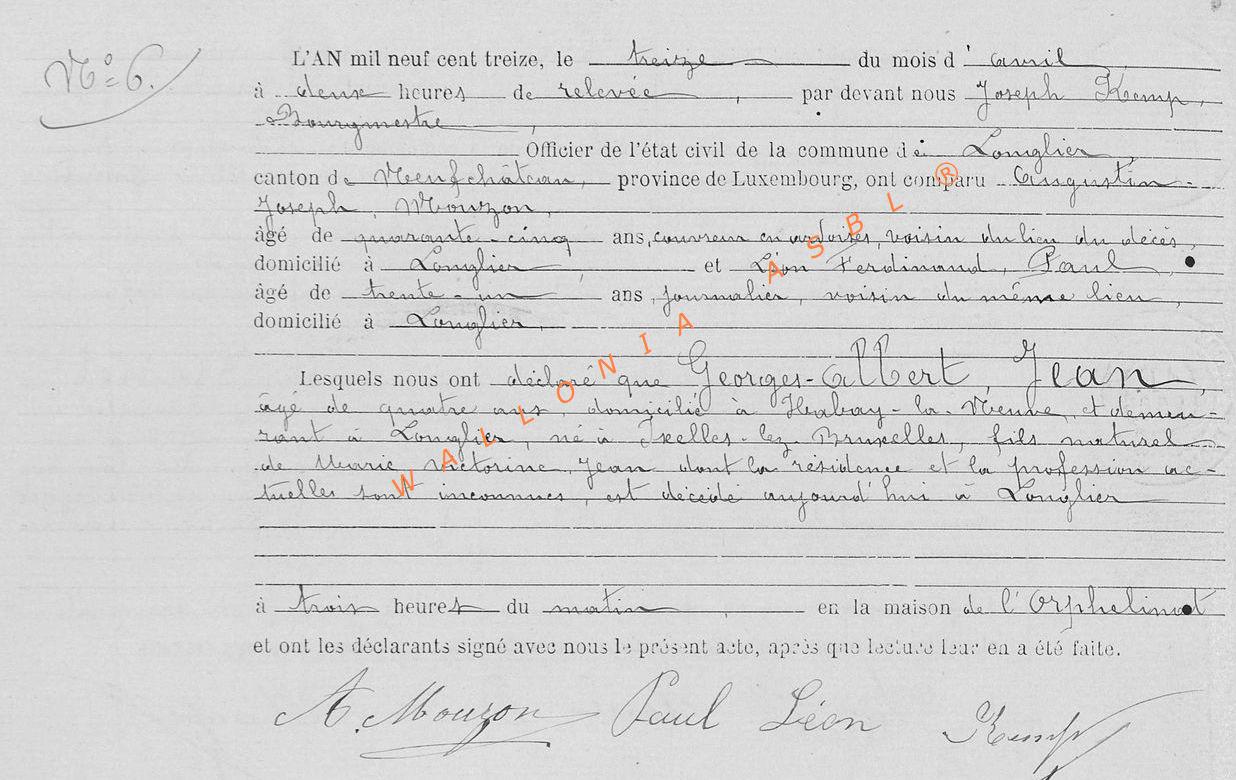 N° 6.
L'AN mil neuf cent treize, le treize du mois d'avril,
à deux heures de relevée, par devant nous Joseph Kemp,
Bourgmestre,
Officier de l'état civil de la commune de Longlier,
canton de Neufchâteau, province de Luxembourg, ont comparu Augustin-
Joseph, Mouzon,
âgé de quarante-cinq ans, couvreur en ardoises, voisin du lieu du décès,
domicilié à Longlier, et Léon Ferdinand, Paul,
âgé de trente-un ans, journalier, voisin du même lieu,
domicilié à Longlier,
Lesquels nous ont déclaré que Georges-Albert, Jean,
âgé de quatre ans, domicilié à Habay-la-Neuve, et demeu-
rant à Longlier, né à Ixelles-lez-Bruxelles, fils naturel
de Marie Victorine Jean dont la résidence et la profession ac-
tuelles sont inconnues, est décédé aujourd'hui à Longlier
à trois heures du matin, en la maison de l'Orphelinat
et ont les déclarants signé avec nous le présent acte, après que lecture leur en a été faite.
A. Mouzon Paul Léon Kemp
WALLONIA ASBL ®